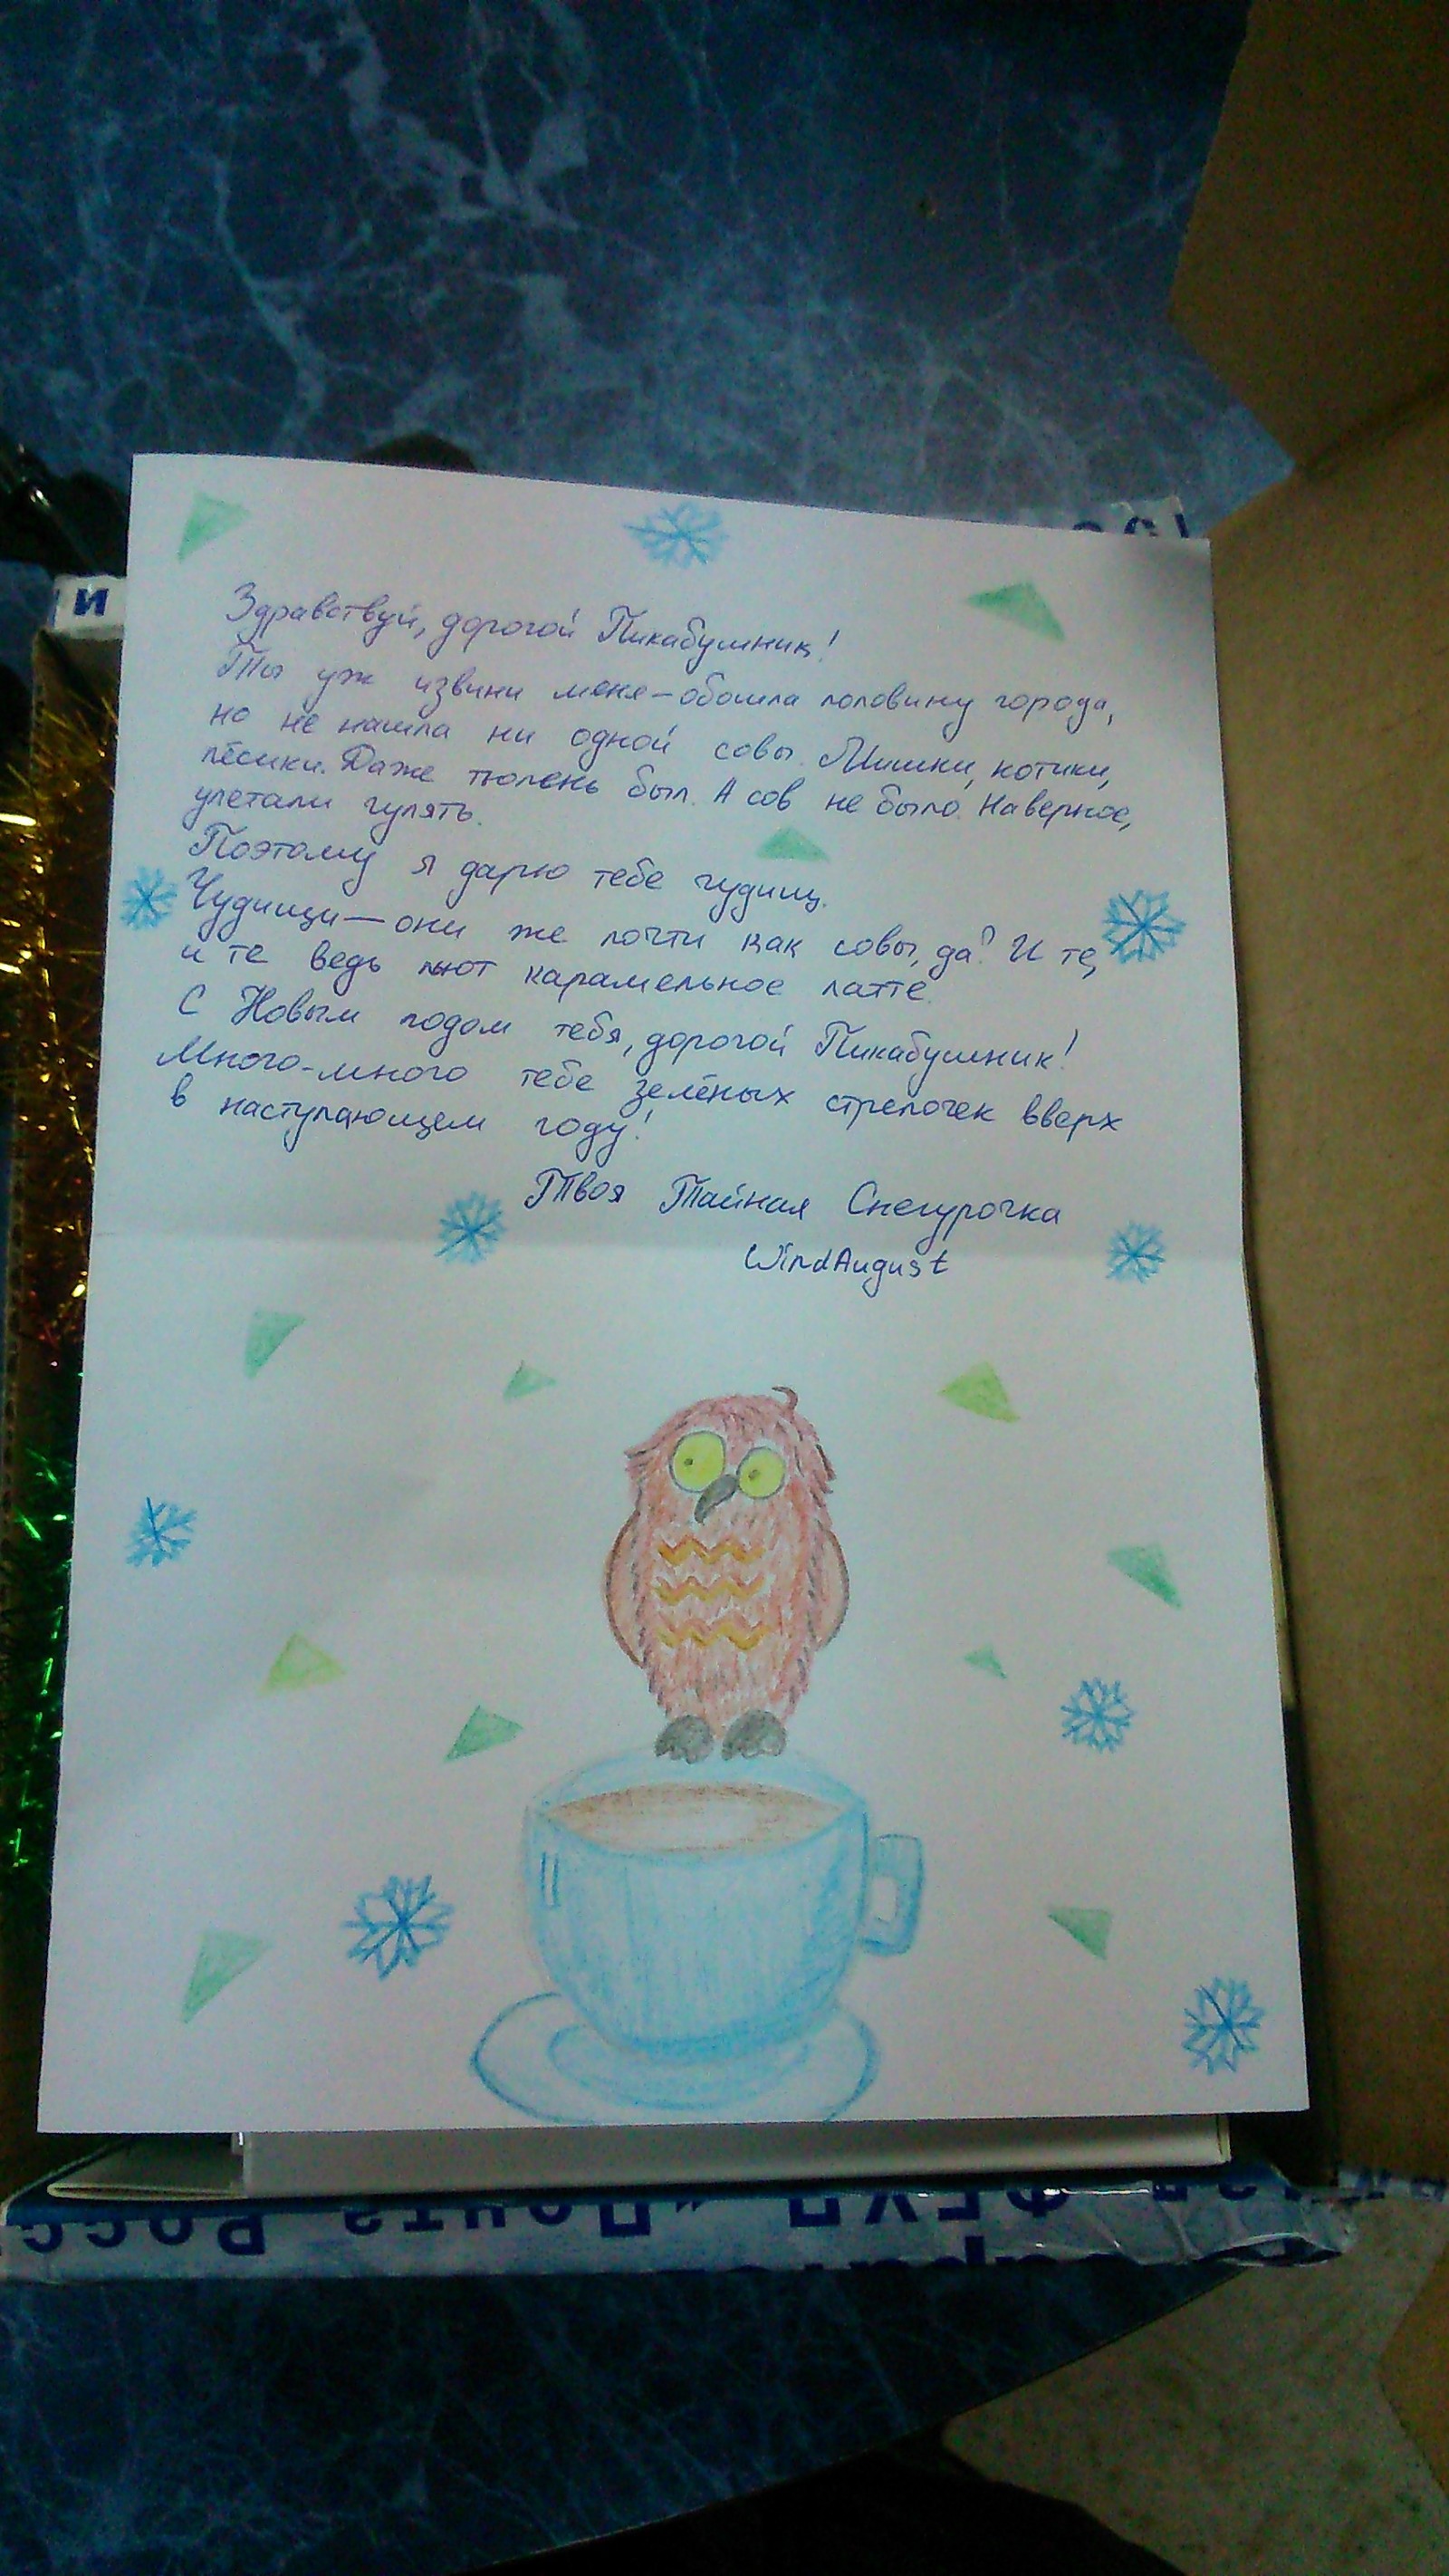 Здравствуй, дорогой Пикабушник!
Ты уж извини меня – обошла половину города,
но не нашла ни одной совы. Мишки, котики,
пёсики. Даже тюлень был. А сов не было. Наверное,
улетали гулять.
Поэтому я дарю тебе чудищ.
Чудищи – они же почти как совы, да? И те,
и те ведь пьют карамельное латте.
С Новым годом тебя, дорогой Пикабушник!
Много-много тебе зелёных стрелочек вверх
в наступающем году!
Твоя Тайная Снегурочка
WindAugust
и
ФГУП „Почта Росс